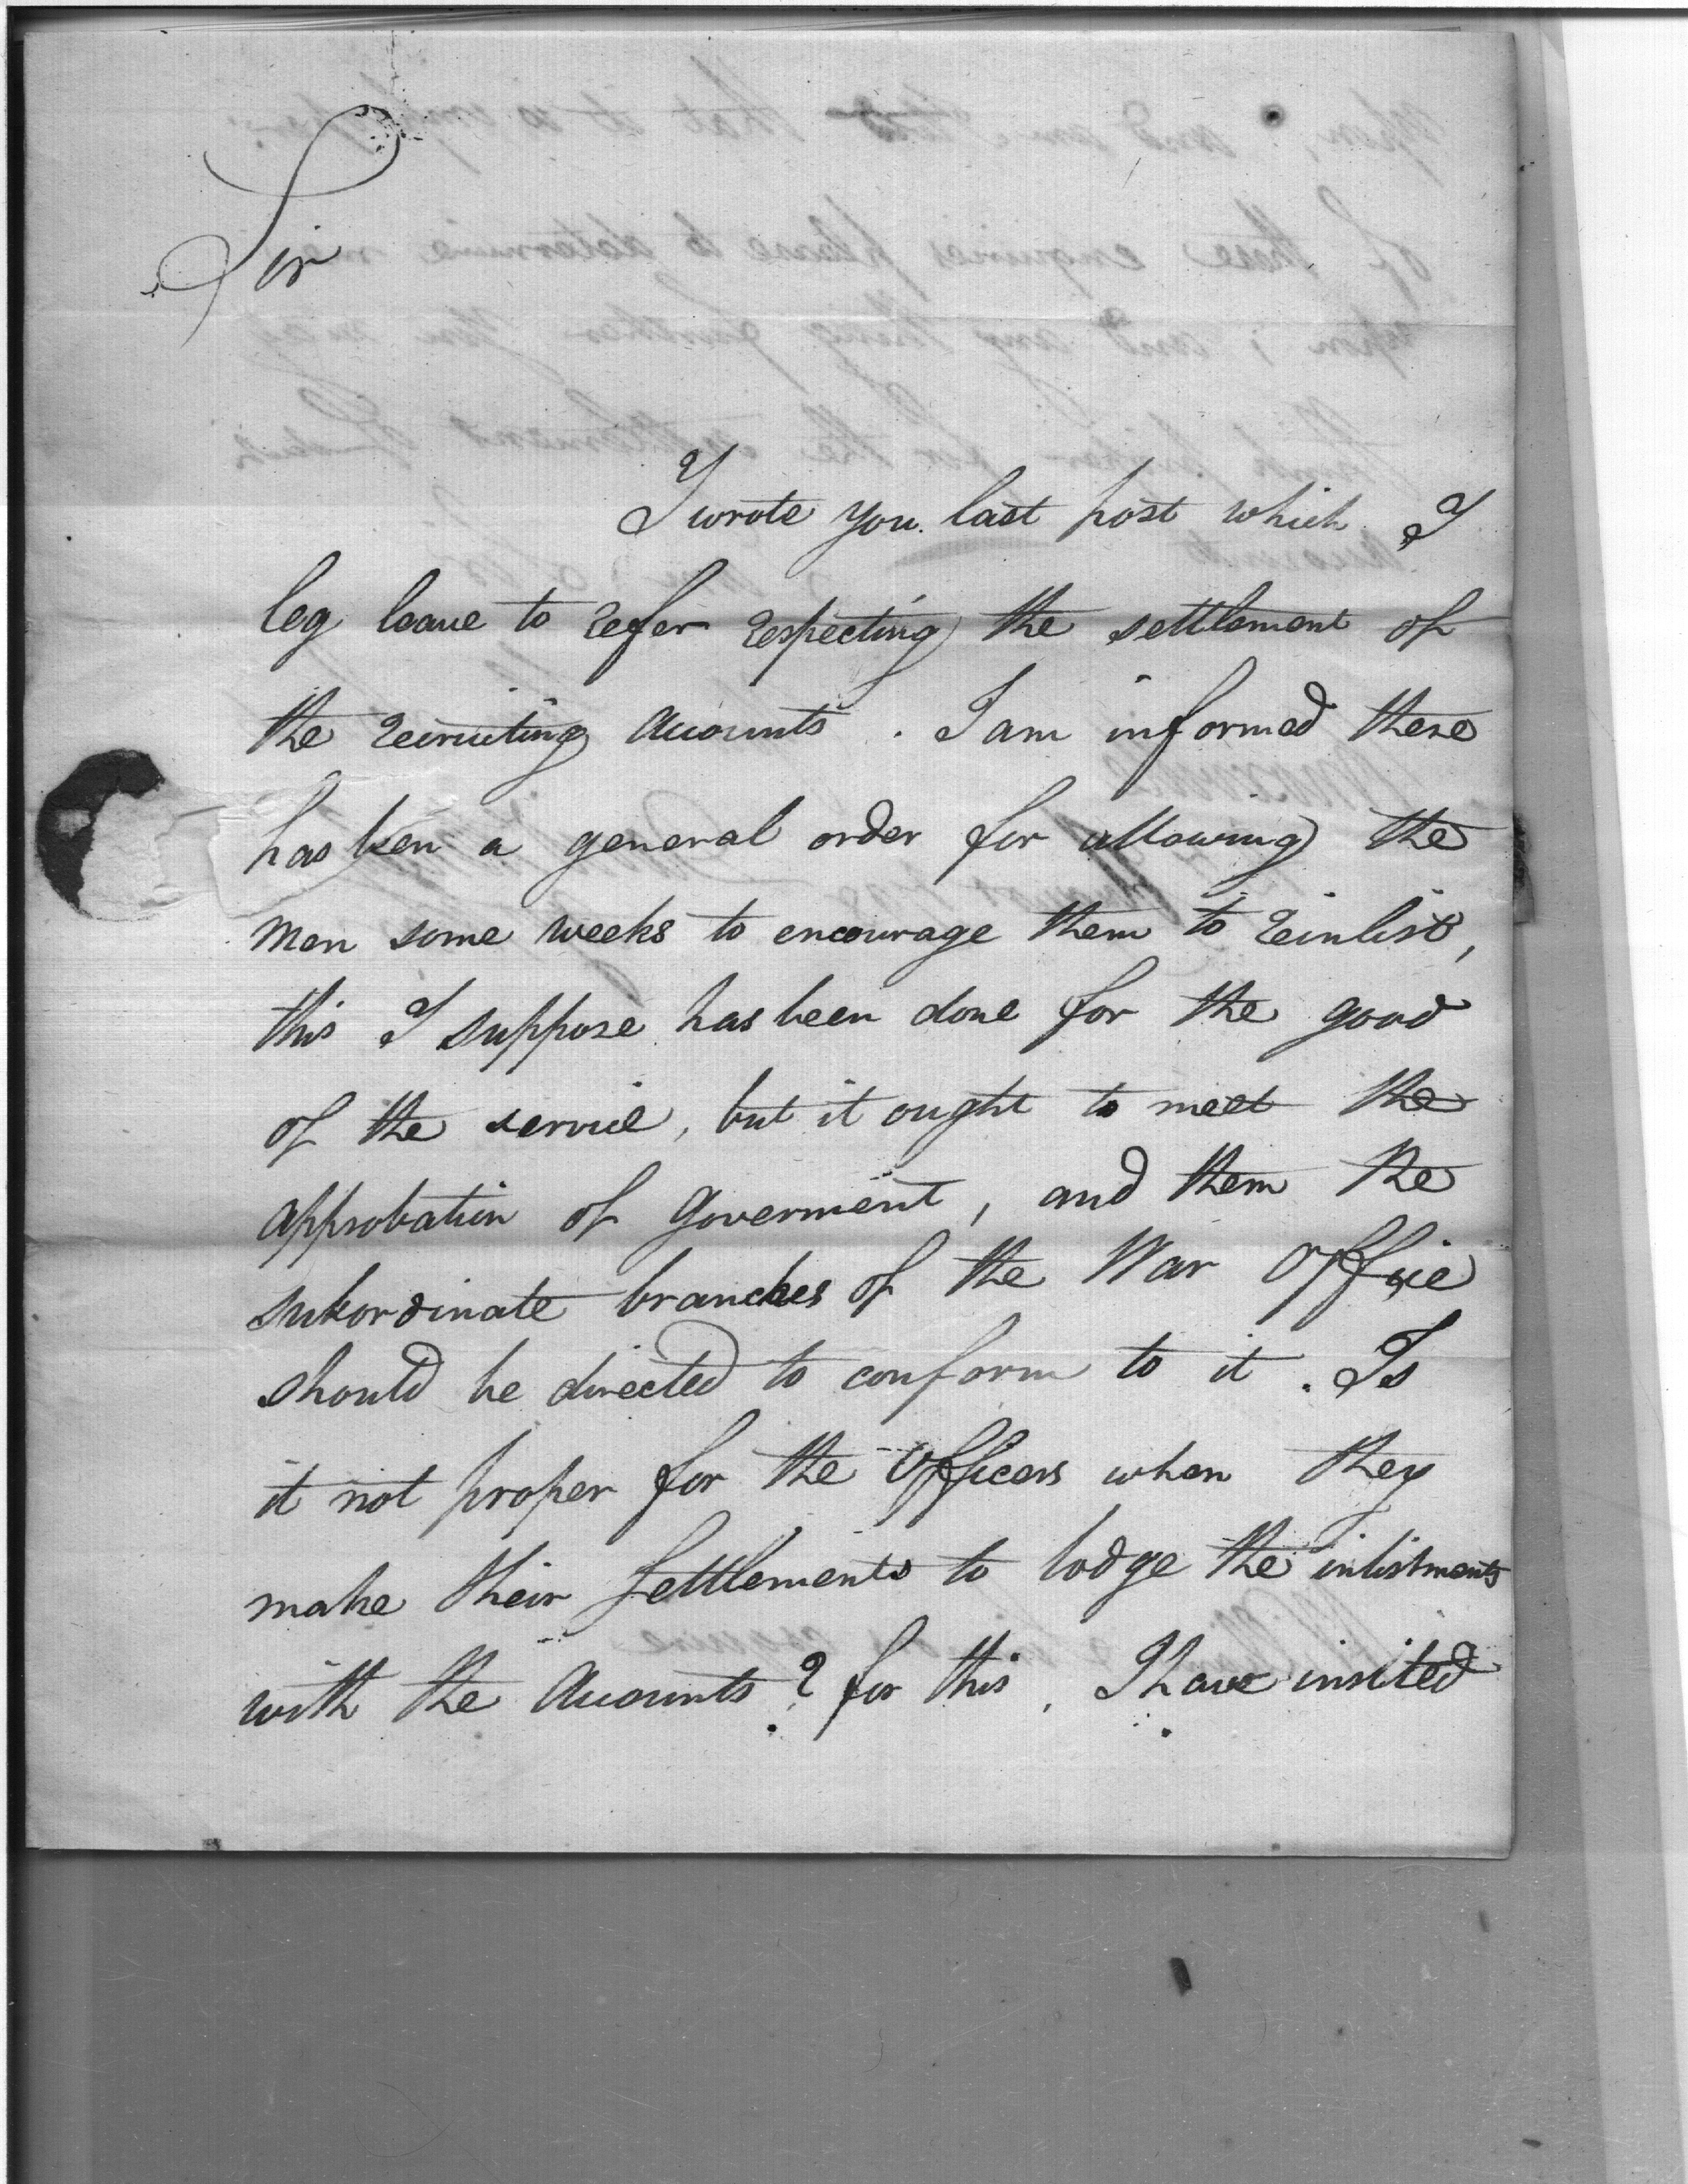 Sir
I wrote you last post which I
beg leave to refer respecting the settlement of
the recruiting accounts. I am informed there
has been a general order for allowing the
men some weeks to encourage them to reinlist,
this I suppose has been done for the good
of the service, but it ought to meet the
approbation of goverment, and them the
subordinate branches of the War Office
should be directed to conform to it. Is
it not proper for the Officers when they
make their settlements to lodge the inlistments
with the accounts? for this, I have insited